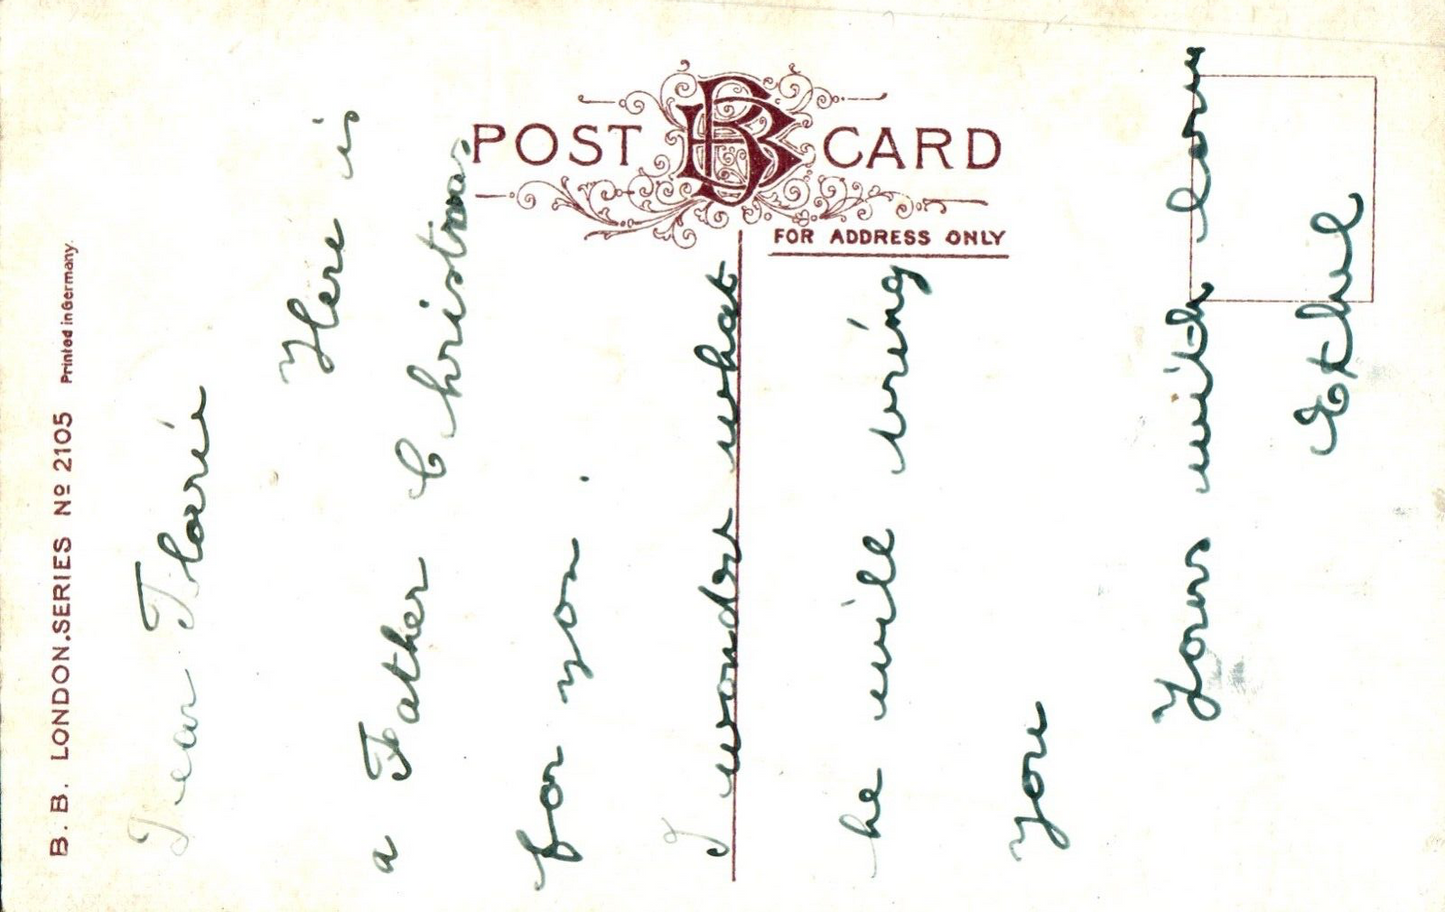 POST CARD
FOR ADDRESS ONLY
B. B. LONDON. SERIES No 2105 Printed in Germany.
Dear Florie
Here is
a Father Christmas
for you.
I wonder what
he will bring
you
Yours with love
Ethel